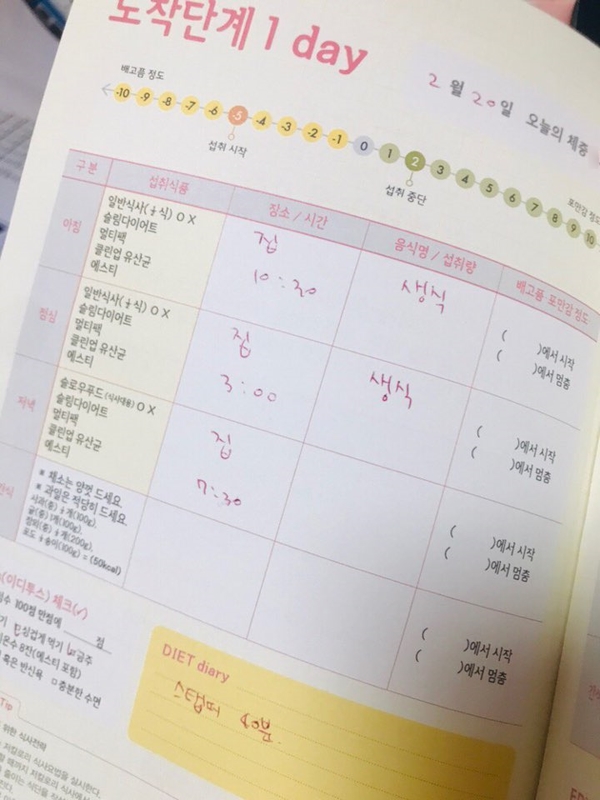 도착단계 1 day
2 월 20 일 오늘의 체중
배고픔 정도
-10 -9 -8 -7 -6 -5 -4 -3 -2 -1 0 1 2 3 4 5 6 7 8 9 10
포만감 정도
섭취 시작
섭취 중단
구분 섭취식품 장소 / 시간 음식명 / 섭취량 배고픔 포만감 정도
아침
일반식사(½식) O X
슬림다이어트
멀티팩
클린업 유산균
에스티
집
10:30
생식
( )에서 시작
( )에서 멈춤
점심
일반식사(½식) O X
슬림다이어트
멀티팩
클린업 유산균
에스티
집
3:00
생식
( )에서 시작
( )에서 멈춤
저녁
슬로우푸드 (식사대용) O X
슬림다이어트
멀티팩
클린업 유산균
에스티
집
7:30
( )에서 시작
( )에서 멈춤
간식
* 채소는 양껏 드세요.
* 과일은 적당히 드세요.
사과(중) ½개(100g),
귤(중) 1개(100g),
참외(중) ½개(200g),
포도 ½송이(100g) = (50kcal)
( )에서 시작
( )에서 멈춤
(이디투스) 체크(✓)
100점 만점에 점
싱겁게 먹기 금주
8잔(에스티 포함)
혹은 반신욕 충분한 수면
DIET diary
스텝퍼 40분.
Tip
위한 식사전략
저칼로리 식사요법을 실시한다.